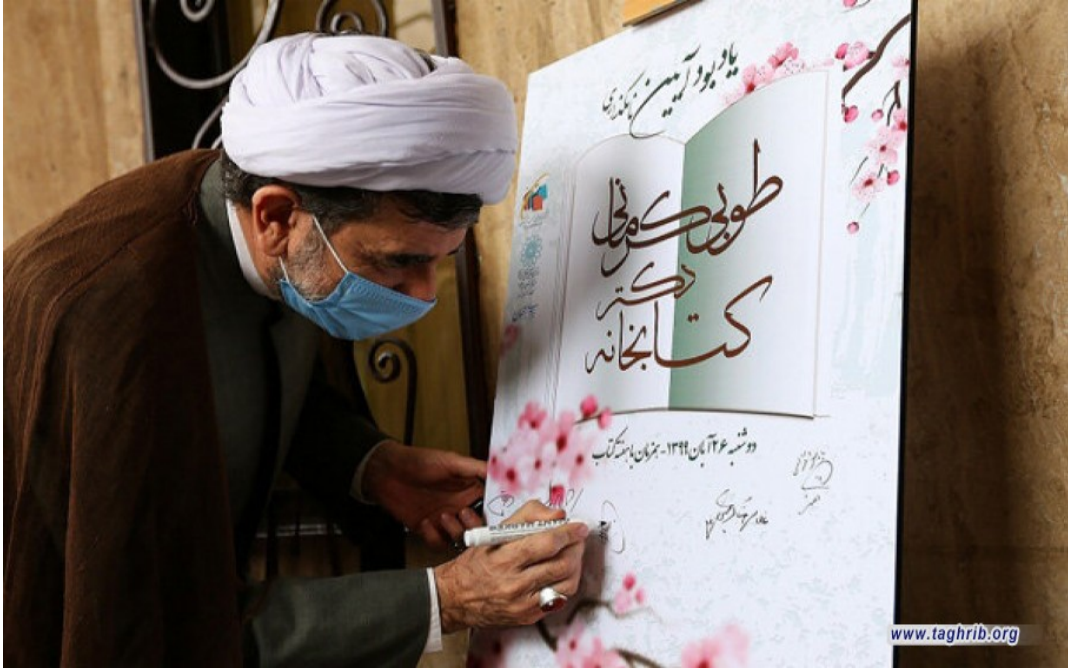 یادبود آیین نامگذاری
کتابخانه
دکتر
طوبی کرمانی
دوشنبه ۲۶ آبان ۱۳۹۹ - همزمان با هفته کتاب
www.taghrib.org